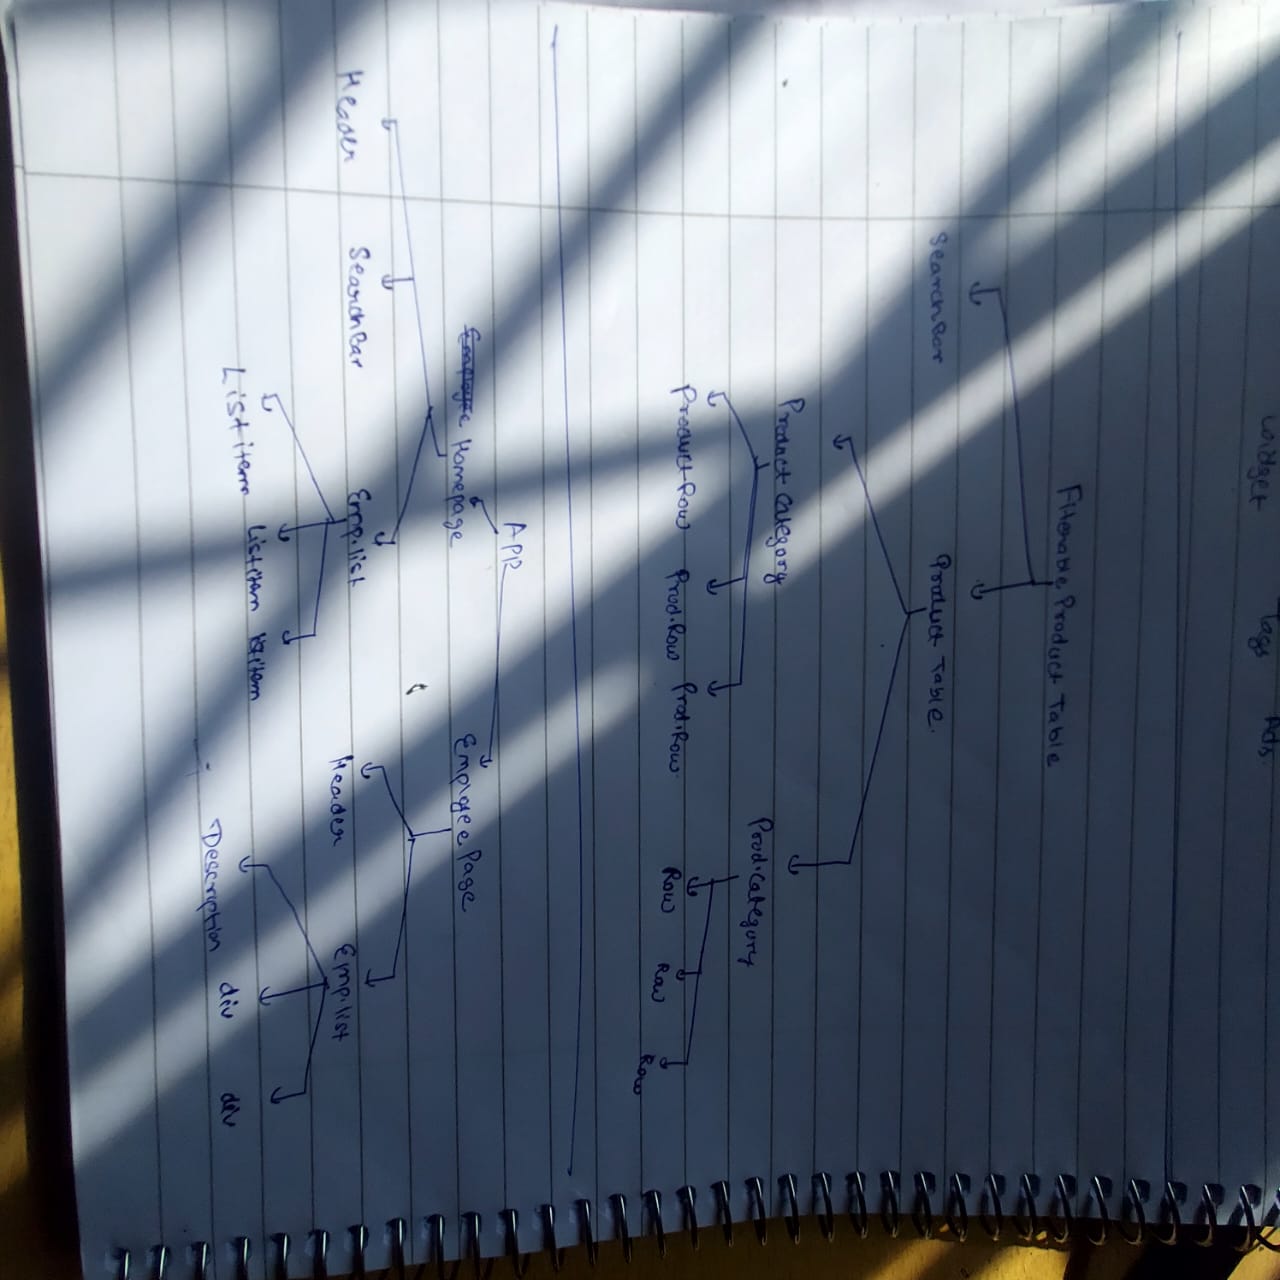 Widget Tags Ads
Filterable Product Table
SearchBar Product Table.
Product Category Prod.Category
Product Row Prod.Row Prod.Row. Row Row Row
App
Homepage Employee Page
Header SearchBar Emp.list Header Emp.list
List item List item Description div div